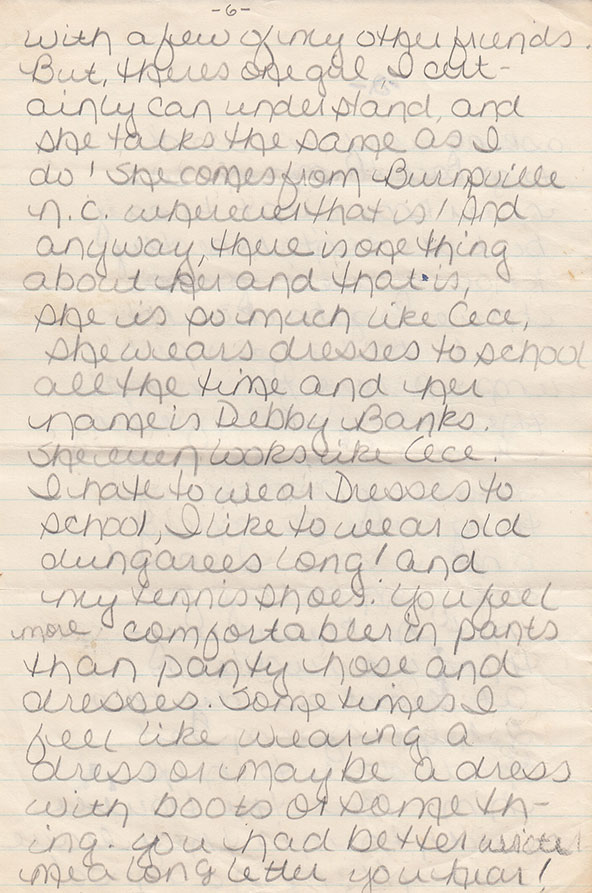 -6-
with a few of my other friends.
But, theres one gal I cert-
ainly can understand, and
she talks the same as I
do! She comes from Burnsville
N.C. wherever that is! And
anyway, there is one thing
about her and that is,
she is so much like Cece,
she wears dresses to school
all the time and her
name is Debby Banks.
She even looks like Cece.
I hate to wear Dresses to
school, I like to wear old
dungarees long! and
my tennis shoes. You feel
more comfortabler in pants
than panty hose and
dresses. Sometimes I
feel like wearing a
dress or maybe a dress
with boots or someth-
ing. you had better write
me a long letter you hear!